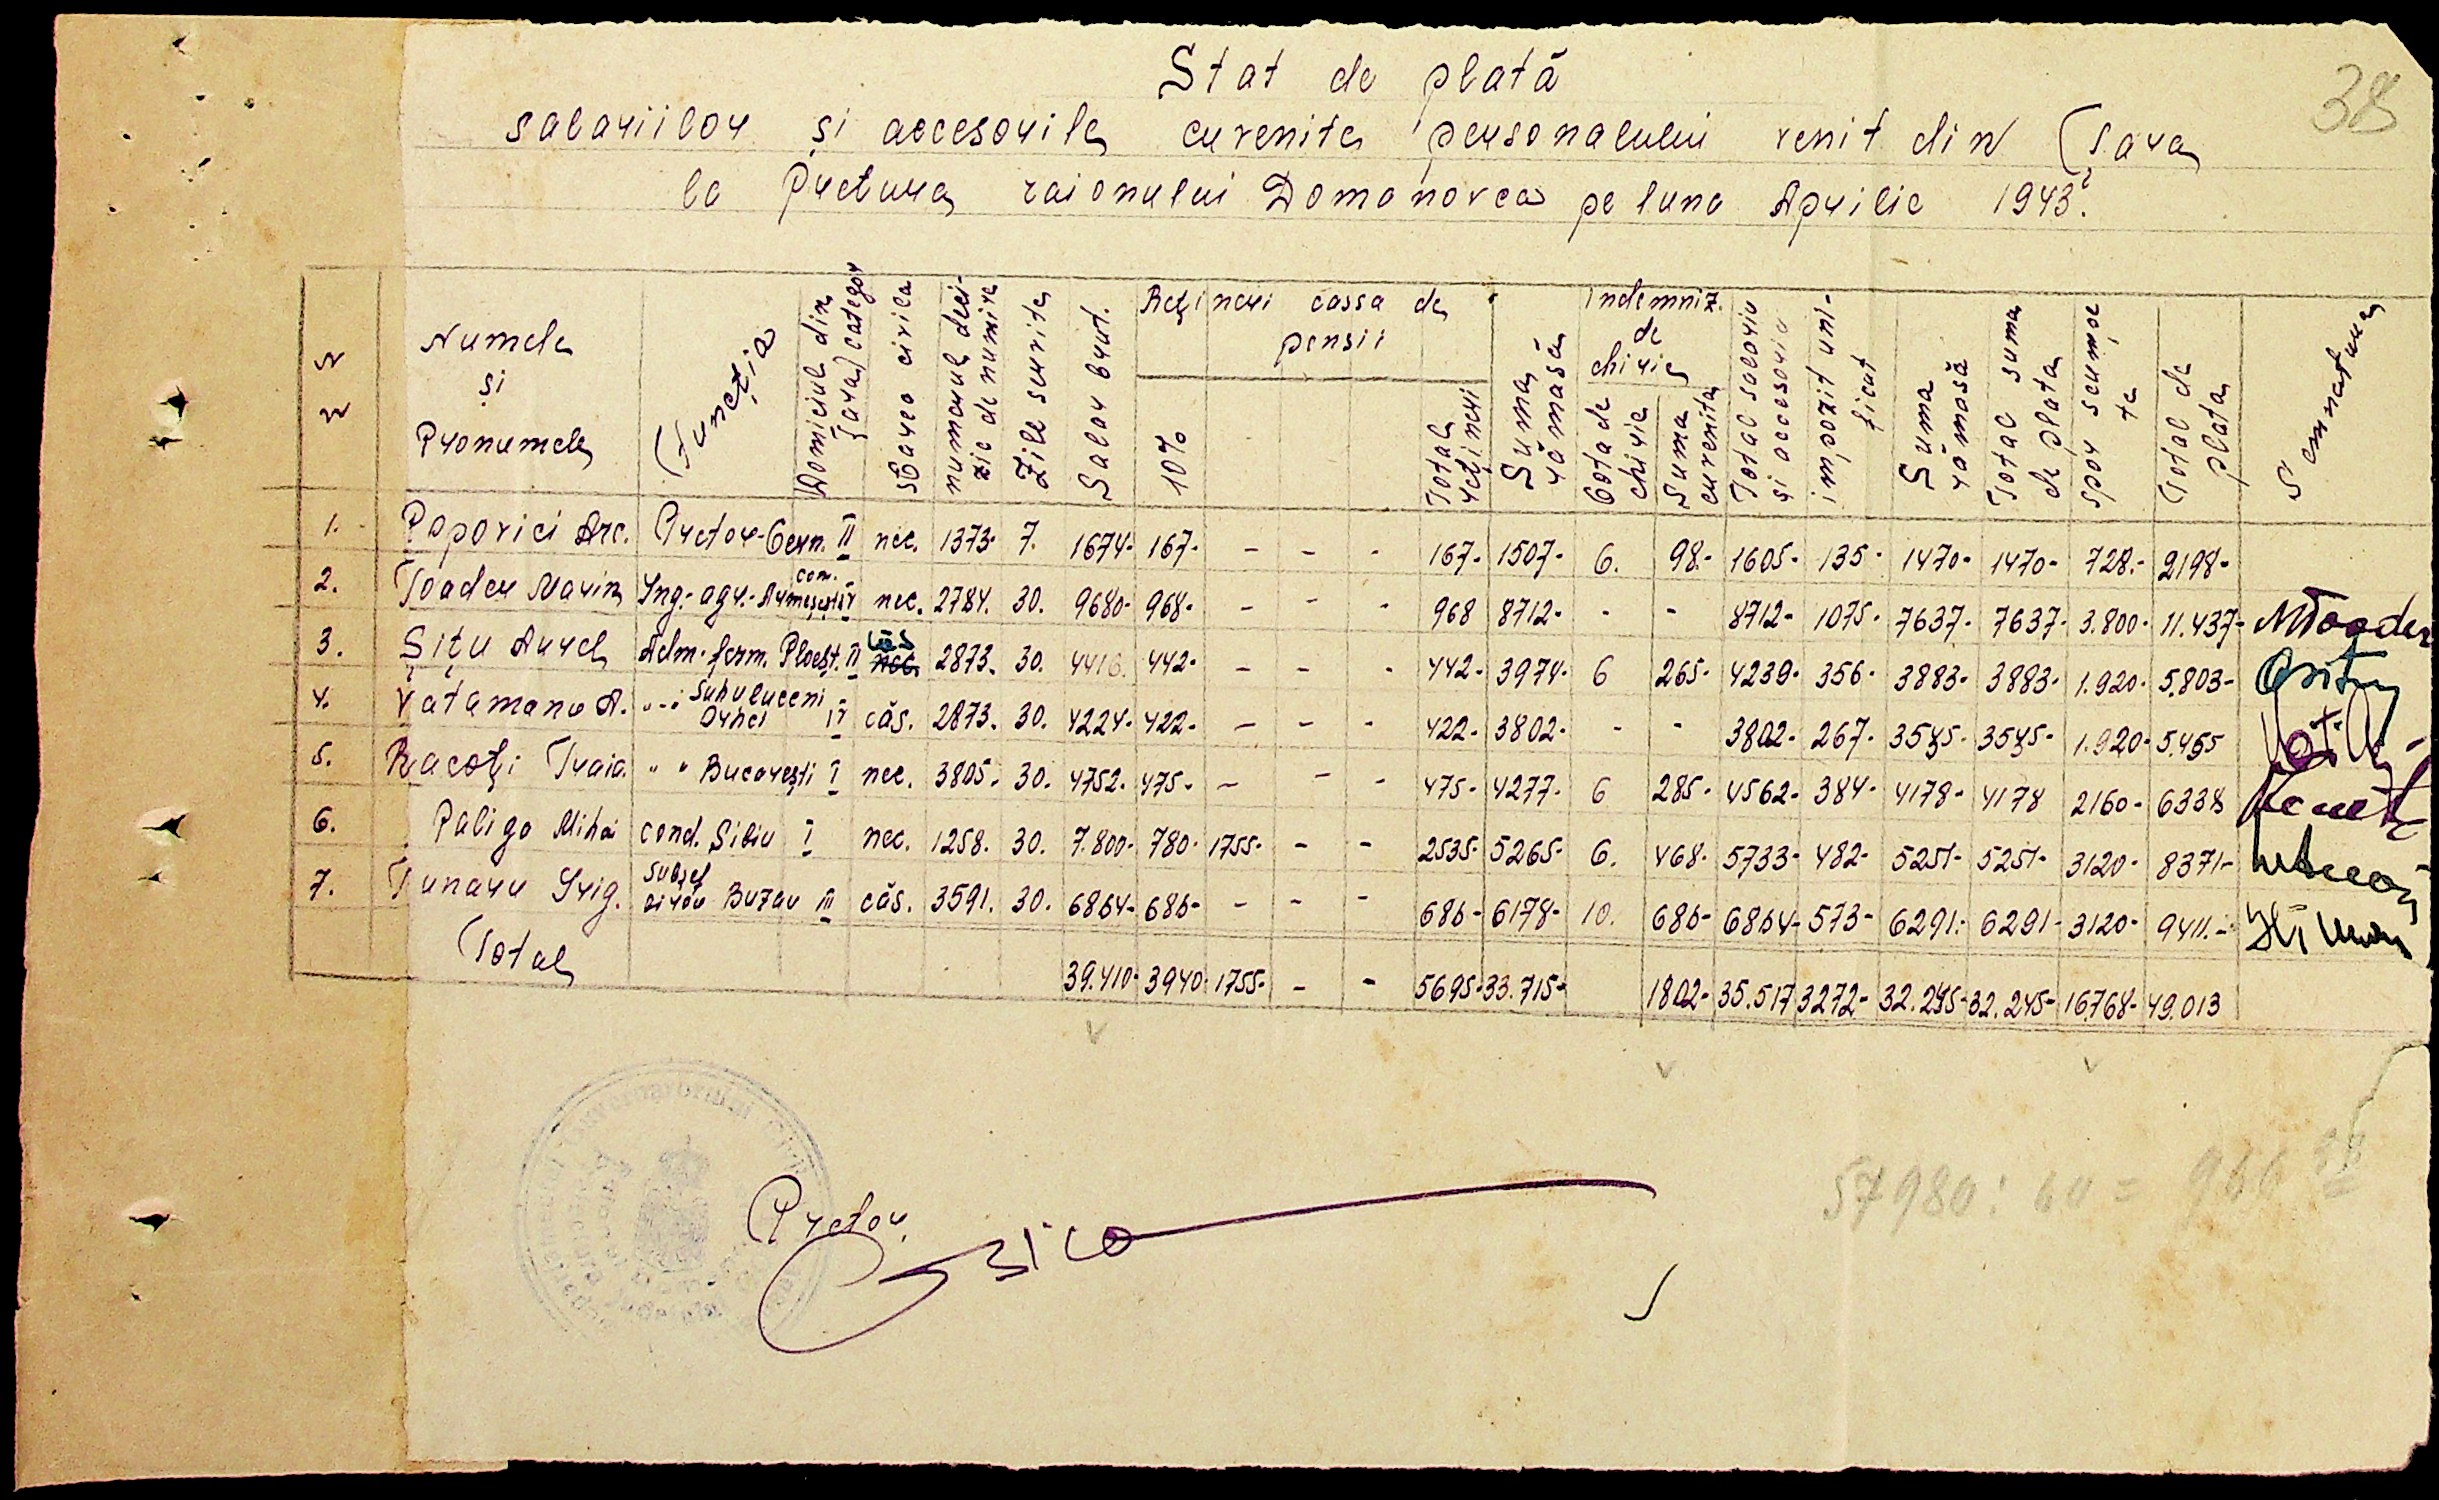 38
Stat de plată
salariilor și accesorile cuvenite personalului venit din Țara
la Pretura raionului Domanovca pe luna Aprilie 1943.
N N
Numele și Pronumele
Funcția
Domiciul din țara, categor
Starea civila
numerul deci-zie de numire
Zile servite
Salar brut.
Rețineri cassa de pensii
10%
Total rețineri
Suma rămasă
indemniz. de chirie
Cota de chirie
Suma cuvenita
Total salariu și accesorii
impozit uni-ficat
Suma rămasă
Total suma de plata
spor scumpe te
Total de plata
Semnatura
1. Popovici Arc. Pretor-Cern. II nec. 1373- 7. 1674- 167- - - - 167- 1507- 6. 98- 1605- 135- 1470- 1470- 728.- 2198-
2. Toader Marin Ing.-agr.- com. Armeșești IV nec. 2784. 30. 9680- 968- - - - 968 8712- - - 8712- 1075- 7637- 7637- 3.800- 11.437- MToader
3. Șițu Aurel Adm. ferm. Ploești. II căs nec. 2873. 30. 4416. 442- - - - 442- 3974- 6 265- 4239- 356- 3883- 3883- 1.920- 5.803-
4. Vatamanu A. "-" Suhuluceni Orhei IV căs. 2873. 30. 4224- 422- - - - 422- 3802- - - 3802- 267- 3535- 3535- 1.920- 5.455
5. Racoți Traia. " " București I nec. 3805- 30. 4752. 475- - - - 475- 4277- 6 285- 4562- 384- 4178- 4178 2160- 6338
6. Paligo Mihai cond. Sibiu I nec. 1258. 30. 7.800- 780- 1755- - - 2535- 5265- 6. 468- 5733- 482- 5251- 5251- 3120- 8371-
7. Tunaru Grig. subșef birou Buzau III căs. 3591. 30. 6864- 686- - - - 686- 6178- 10. 686- 6864- 573- 6291- 6291- 3120- 9411.-
Total 39.410- 3940- 1755- - - 5695- 33.715- 1802- 35.517 3272- 32.245- 32.245- 16768- 49.013
Pretor
57980: 60 = 966